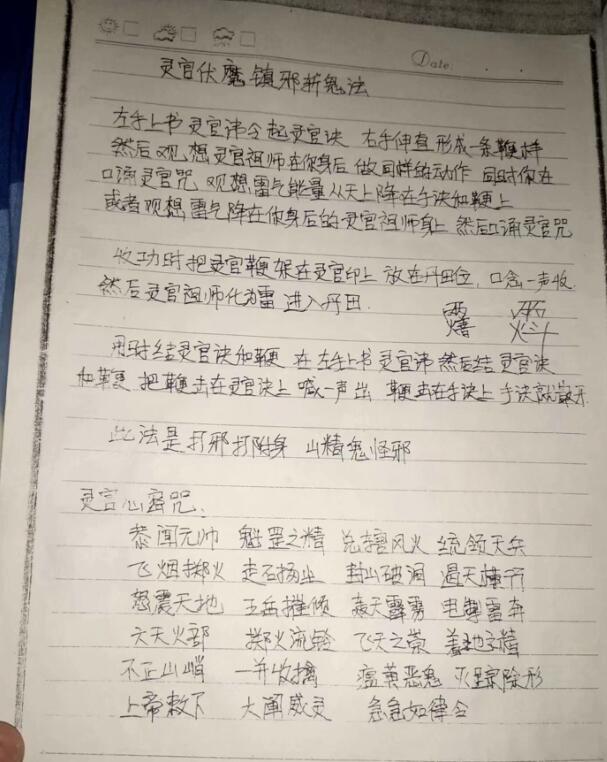 Date:
灵官伏魔镇邪斩鬼法
左手上书灵官讳令起灵官诀 右手伸直形成一条鞭样
然后观想灵官祖师在你身后 做同样的动作 同时你在
口诵灵官咒 观想雷气能量从天上降在手诀和鞭上
或者观想雷气降在你身后的灵官祖师身上 然后口诵灵官咒
收功时把灵官鞭 在灵官印上 放在丹田位,口念一声收
然后灵官祖师化为雷 进入丹田.
用时结灵官诀和鞭 在左手上书灵官讳 然后结灵官诀
和鞭 把鞭击在灵官诀上 喊一声出 鞭击在手诀上 手诀就散开
此法是打邪打附身 山精鬼怪邪
灵官心密咒:
恭闻元帅 魁罡之精 总辖风火 统领天兵
飞烟掷火 走石扬尘 封山破洞 遏天横行
怒震天地 五岳摧倾 轰天霹雳 电掣雷奔
六天火部 掷火流铃 飞天之荣 着地子精
不正山魈 一并收擒 瘟黄恶鬼 灭踪除形
上帝敕下 大阐威灵 急急如律令